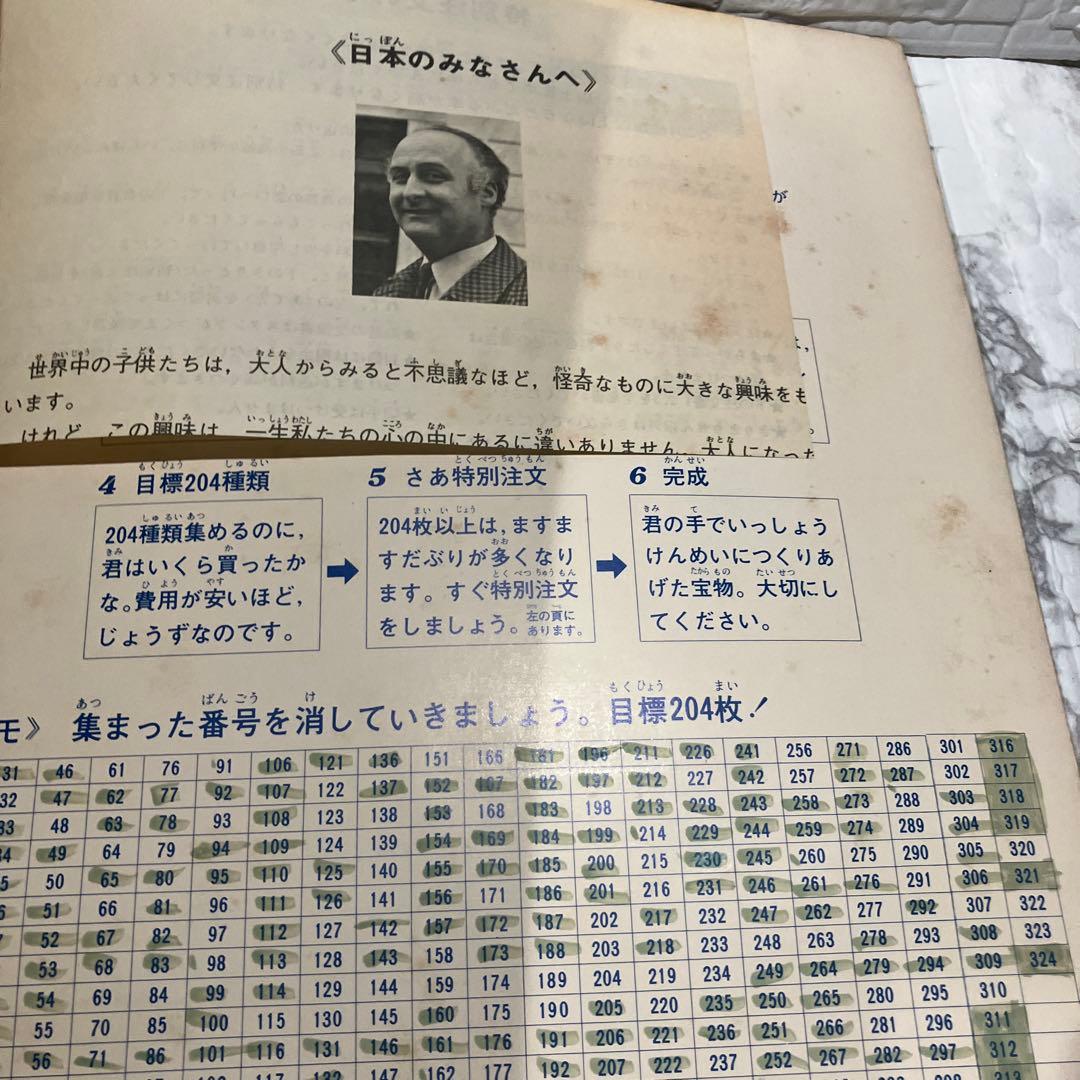 《日本のみなさんへ》
にっぽん
が
世界中の子供たちは，大人からみると不思議なほど，怪奇なものに大きな興味をも
せかいじゅう こども おとな ふしぎ かいき おお きょうみ
います。
けれど，この興味は，一生私たちの心の中にあるに違いありません。大人になった
きょうみ いっしょうわたし こころ なか ちが おとな
4 目標204種類
もくひょう しゅるい
204種類集めるのに,
しゅるいあつ
君はいくら買ったか
きみ か
な。費用が安いほど,
ひよう やす
じょうずなのです。
5 さあ特別注文
とくべつちゅうもん
204枚以上は,ますま
まいいじょう
すだぶりが多くなり
おお
ます。すぐ特別注文
とくべつちゅうもん
をしましょう。左の頁に
あります。
6 完成
かんせい
君の手でいっしょう
きみ て
けんめいにつくりあ
げた宝物。大切にし
たからもの たいせつ
てください。
モ》 集まった番号を消していきましょう。目標204枚！
あつ ばんごう け もくひょう まい
31 46 61 76 91 106 121 136 151 166 181 196 211 226 241 256 271 286 301 316
32 47 62 77 92 107 122 137 152 167 182 197 212 227 242 257 272 287 302 317
33 48 63 78 93 108 123 138 153 168 183 198 213 228 243 258 273 288 303 318
34 49 64 79 94 109 124 139 154 169 184 199 214 229 244 259 274 289 304 319
5 50 65 80 95 110 125 140 155 170 185 200 215 230 245 260 275 290 305 320
6 51 66 81 96 111 126 141 156 171 186 201 216 231 246 261 276 291 306 321
7 52 67 82 97 112 127 142 157 172 187 202 217 232 247 262 277 292 307 322
53 68 83 98 113 128 143 158 173 188 203 218 233 248 263 278 293 308 323
54 69 84 99 114 129 144 159 174 189 204 219 234 249 264 279 294 309 324
55 70 85 100 115 130 145 160 175 190 205 220 235 250 265 280 295 310
56 71 86 101 116 131 146 161 176 191 206 221 236 251 266 281 296 311
132 147 162 177 192 207 222 237 252 267 282 297 312
313